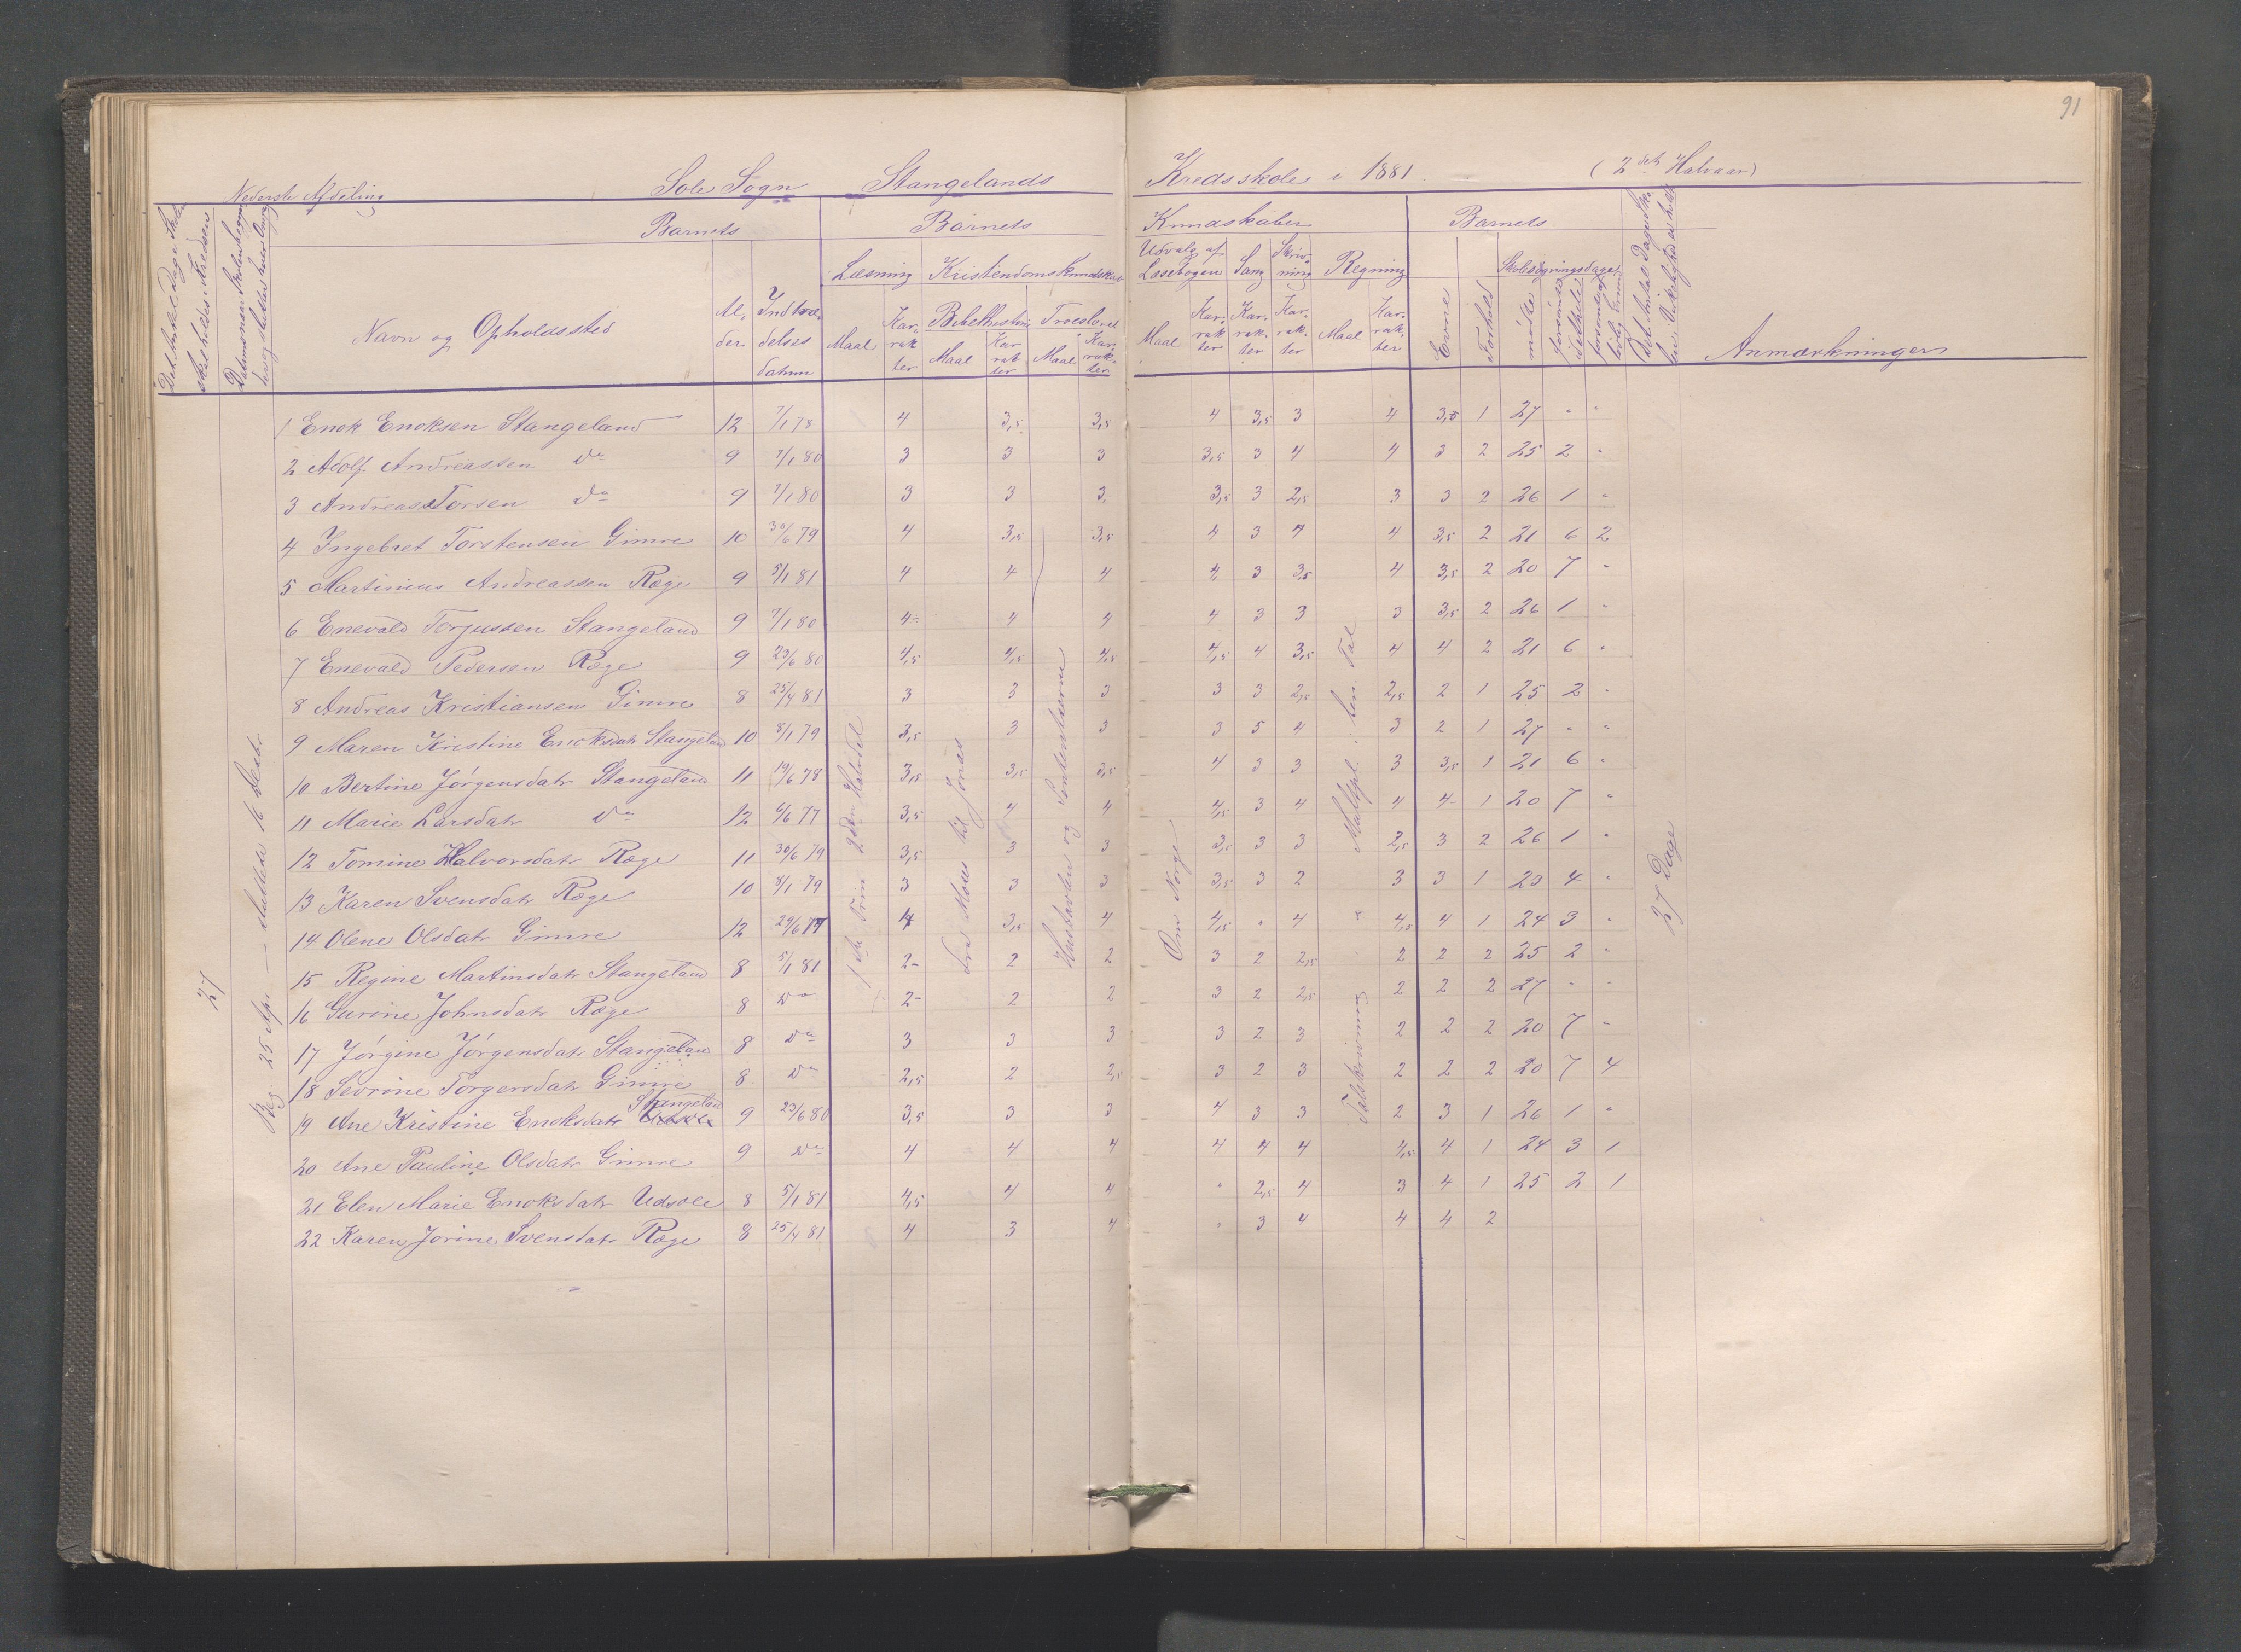 91
Nederste Afdeling Sole Sogn Stangelands Kredsskole i 1881 (2det Halvaar)
Barnets Barnets Kundskaber Barnets
Læsning Kristendomskundskab Udvalg af Læsebogen Sang Skrivning Regning Skolesøgningsdage
Bibelhistorie Troeslære
Navn og Opholdssted Alder Indtrædelsesdatum Maal Karakter Maal Karakter Maal Karakter Maal Karakter Karakter Karakter Maal Karakter Evne Forhold mødte forsømte Anmærkninger
27
Beg. 25 Apr. — sluttede 16 Decbr.
1 Enok Enoksen Stangeland 12 7/1 78 4 3,5 3,5 4 3,5 3 4 3,5 1 27 " "
2 Adolf Andreassen Do 9 7/1 80 3 3 3 3,5 3 4 4 3 2 25 2 "
3 Andreas Torsen Do 9 7/1 80 3 3 3 3,5 3 2,5 3 3 2 26 1 "
4 Ingebret Torstensen Gimre 10 30/6 79 4 3,5 3,5 4 3 4 4 3,5 2 21 6 2
5 Martinius Andreassen Ræge 9 5/1 81 4 4 4 4 3 3,5 4 3,5 2 20 7 "
6 Enevald Torjussen Stangeland 9 7/1 80 4 4 4 4 3 3 3 3,5 2 26 1 "
7 Enevald Pedersen Ræge 9 23/6 80 4,5 4,5 4,5 4,5 4 3,5 4 4 2 21 6 "
8 Andreas Kristiansen Gimre 8 25/4 81 3 3 3 3 3 2,5 2,5 2 1 25 2 "
9 Maren Kristine Enoksdatr Stangeland 10 8/1 79 3,5 3 3 3 5 4 3 2 1 27 " "
10 Bertine Jörgensdatr Stangeland 11 19/6 78 3,5 3,5 3,5 4 3 3 3 3,5 1 21 6 "
11 Marie Larsdatr Do 12 6/6 77 3,5 4 4 4,5 3 4 4 4 1 20 7 "
12 Tomine Halvorsdatr Ræge 11 30/6 79 3,5 3 3 3,5 3 3 2,5 3 2 26 1 "
13 Karen Svensdatr Ræge 10 8/1 79 3 3 3 3,5 3 2 3 3 1 23 4 "
14 Olene Olsdatr Gimre 12 29/6 77 4 3,5 4 4,5 " 4 4,5 4 1 24 3 "
15 Regine Martinsdatr Stangeland 8 5/1 81 2 2 2 3 2 2,5 2 2 2 25 2 "
16 Gurine Johnsdatr Ræge 8 Do 2 2 2 3 2 2,5 2 2 2 27 " "
17 Jörgine Jörgensdatr Stangeland 8 Do 3 3 3 3 2 3 2 2 2 20 7 "
18 Sevrine Torgersdatr Gimre 8 Do 2,5 2 2,5 3 2 3 2 2 2 20 7 4
19 Ane Kristine Enoksdatr Stangeland 9 23/6 80 3,5 3 3 4 3 3 2 3 1 26 1 "
20 Ane Pauline Olsdatr Gimre 9 Do 4 4 4 4 4 4 4,5 4 1 24 3 1
21 Elen Marie Enoksdatr Udsole 8 5/1 81 4,5 4 4 " 2,5 4 3 4 1 25 2 1
22 Karen Jorine Svensdatr Ræge 8 25/4 81 4 3 4 " 3 4 4 4 2
1ste Trin 2den Halvdel
Fra Moses til Jonas
Om Norge
Talskrivning
27 Dage